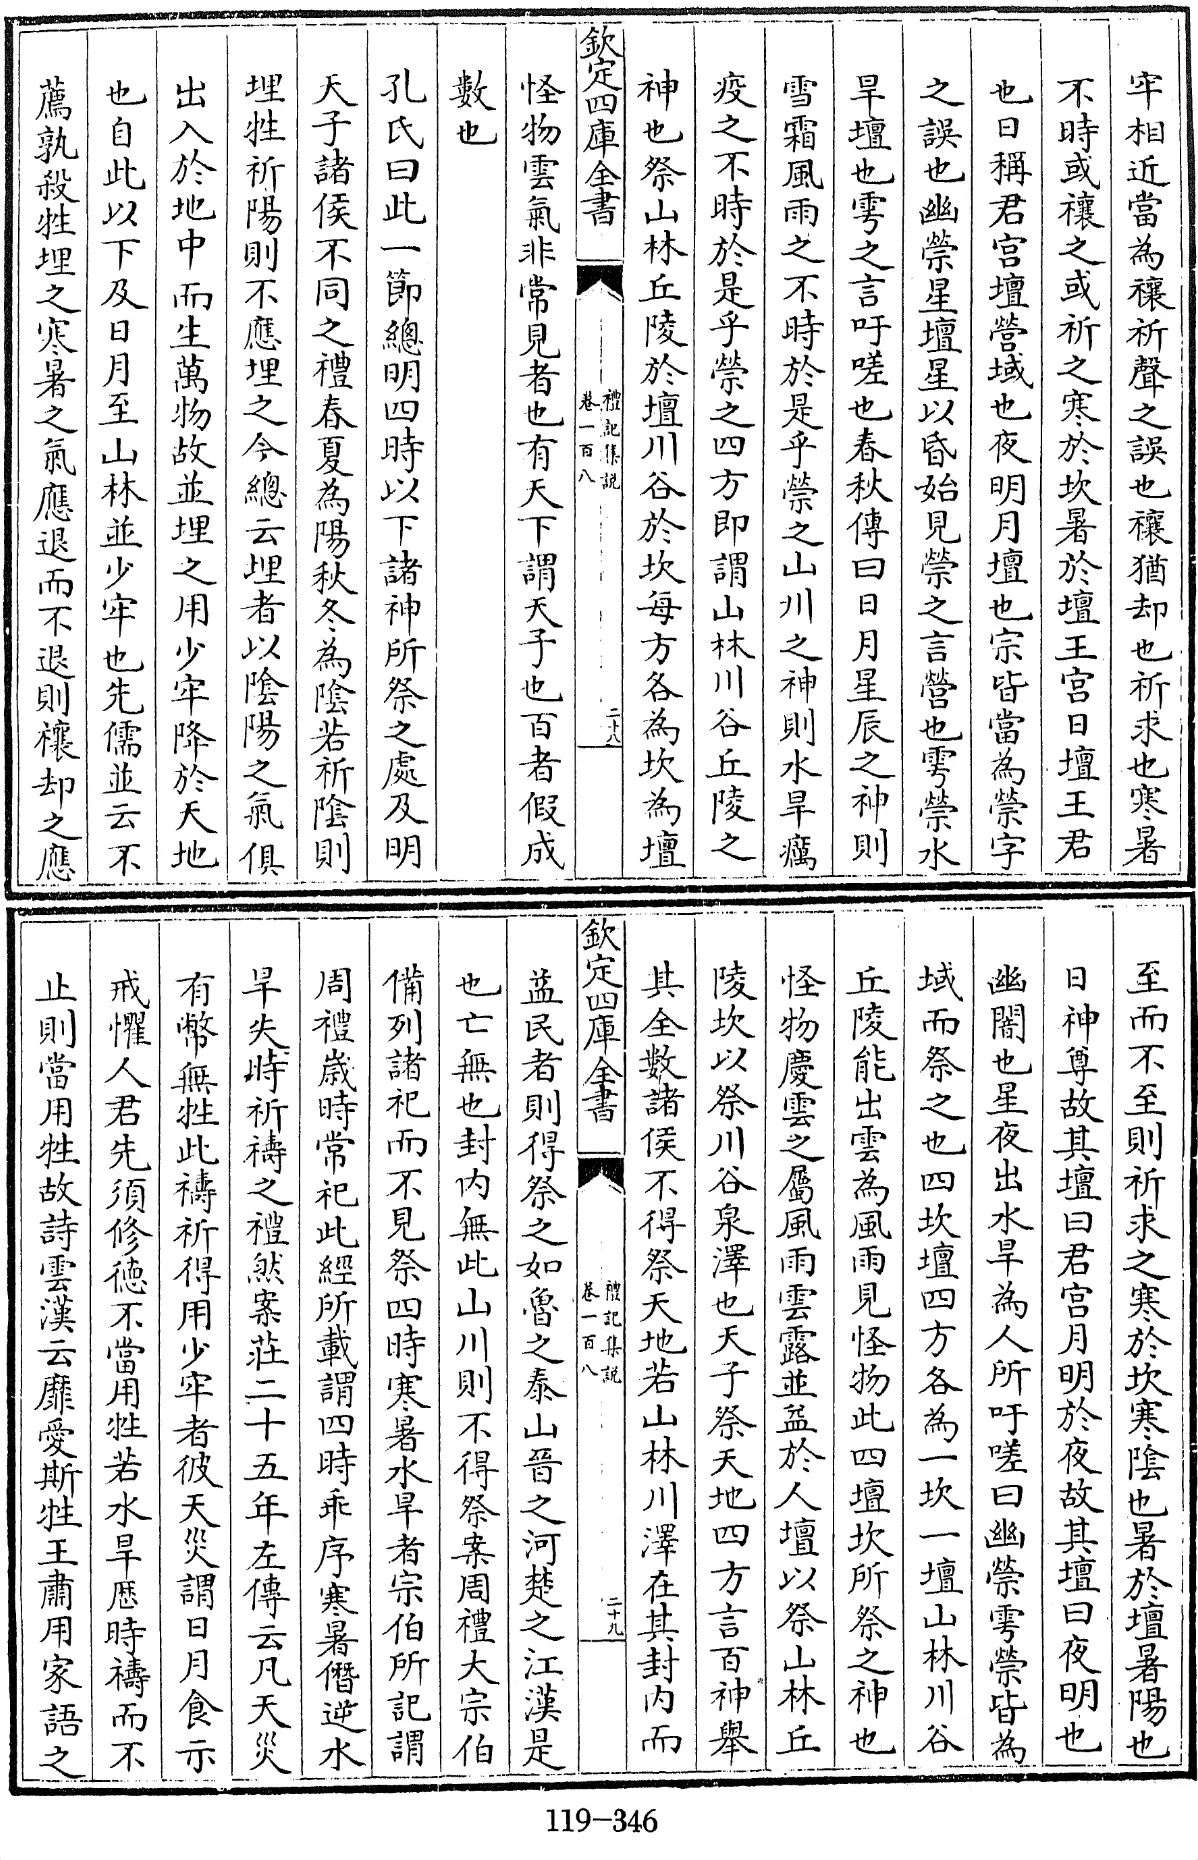 牢相近當為禳祈聲之誤也禳猶却也祈求也寒暑
不時或禳之或祈之寒於坎暑於壇王宫日壇王君
也日稱君宫壇營域也夜明月壇也宗皆當為禜字
之誤也幽禜星壇星以昏始見禜之言營也雩禜水
旱壇也雩之言吁嗟也春秋傳曰日月星辰之神則
雪霜風雨之不時於是乎禜之山川之神則水旱癘
疫之不時於是乎禜之四方即謂山林川谷丘陵之
神也祭山林丘陵於壇川谷於坎每方各為坎為壇
欽定四庫全書
禮記集說
卷一百八
二十八
怪物雲氣非常見者也有天下謂天子也百者假成
數也
孔氏曰此一節總明四時以下諸神所祭之處及明
天子諸侯不同之禮春夏為陽秋冬為陰若祈陰則
埋牲祈陽則不應埋之今總云埋者以陰陽之氣俱
出入於地中而生萬物故並埋之用少牢降於天地
也自此以下及日月至山林並少牢也先儒並云不
薦孰殺牲埋之寒暑之氣應退而不退則禳却之應
至而不至則祈求之寒於坎寒陰也暑於壇暑陽也
日神尊故其壇曰君宫月明於夜故其壇曰夜明也
幽闇也星夜出水旱為人所吁嗟曰幽禜雩禜皆為
域而祭之也四坎壇四方各為一坎一壇山林川谷
丘陵能出雲為風雨見怪物此四壇坎所祭之神也
怪物慶雲之屬風雨雲露並益於人壇以祭山林丘
陵坎以祭川谷泉澤也天子祭天地四方言百神舉
其全數諸侯不得祭天地若山林川澤在其封内而
欽定四庫全書
禮記集說
卷一百八
二十九
益民者則得祭之如魯之泰山晉之河楚之江漢是
也亡無也封内無此山川則不得祭案周禮大宗伯
備列諸祀而不見祭四時寒暑水旱者宗伯所記謂
周禮歲時常祀此經所載謂四時乖序寒暑僭逆水
旱失時祈禱之禮然案莊二十五年左傳云凡天災
有幣無牲此禱祈得用少牢者彼天災謂日月食示
戒懼人君先須修德不當用牲若水旱歷時禱而不
止則當用牲故詩雲漢云靡愛斯牲王肅用家語之
119-346